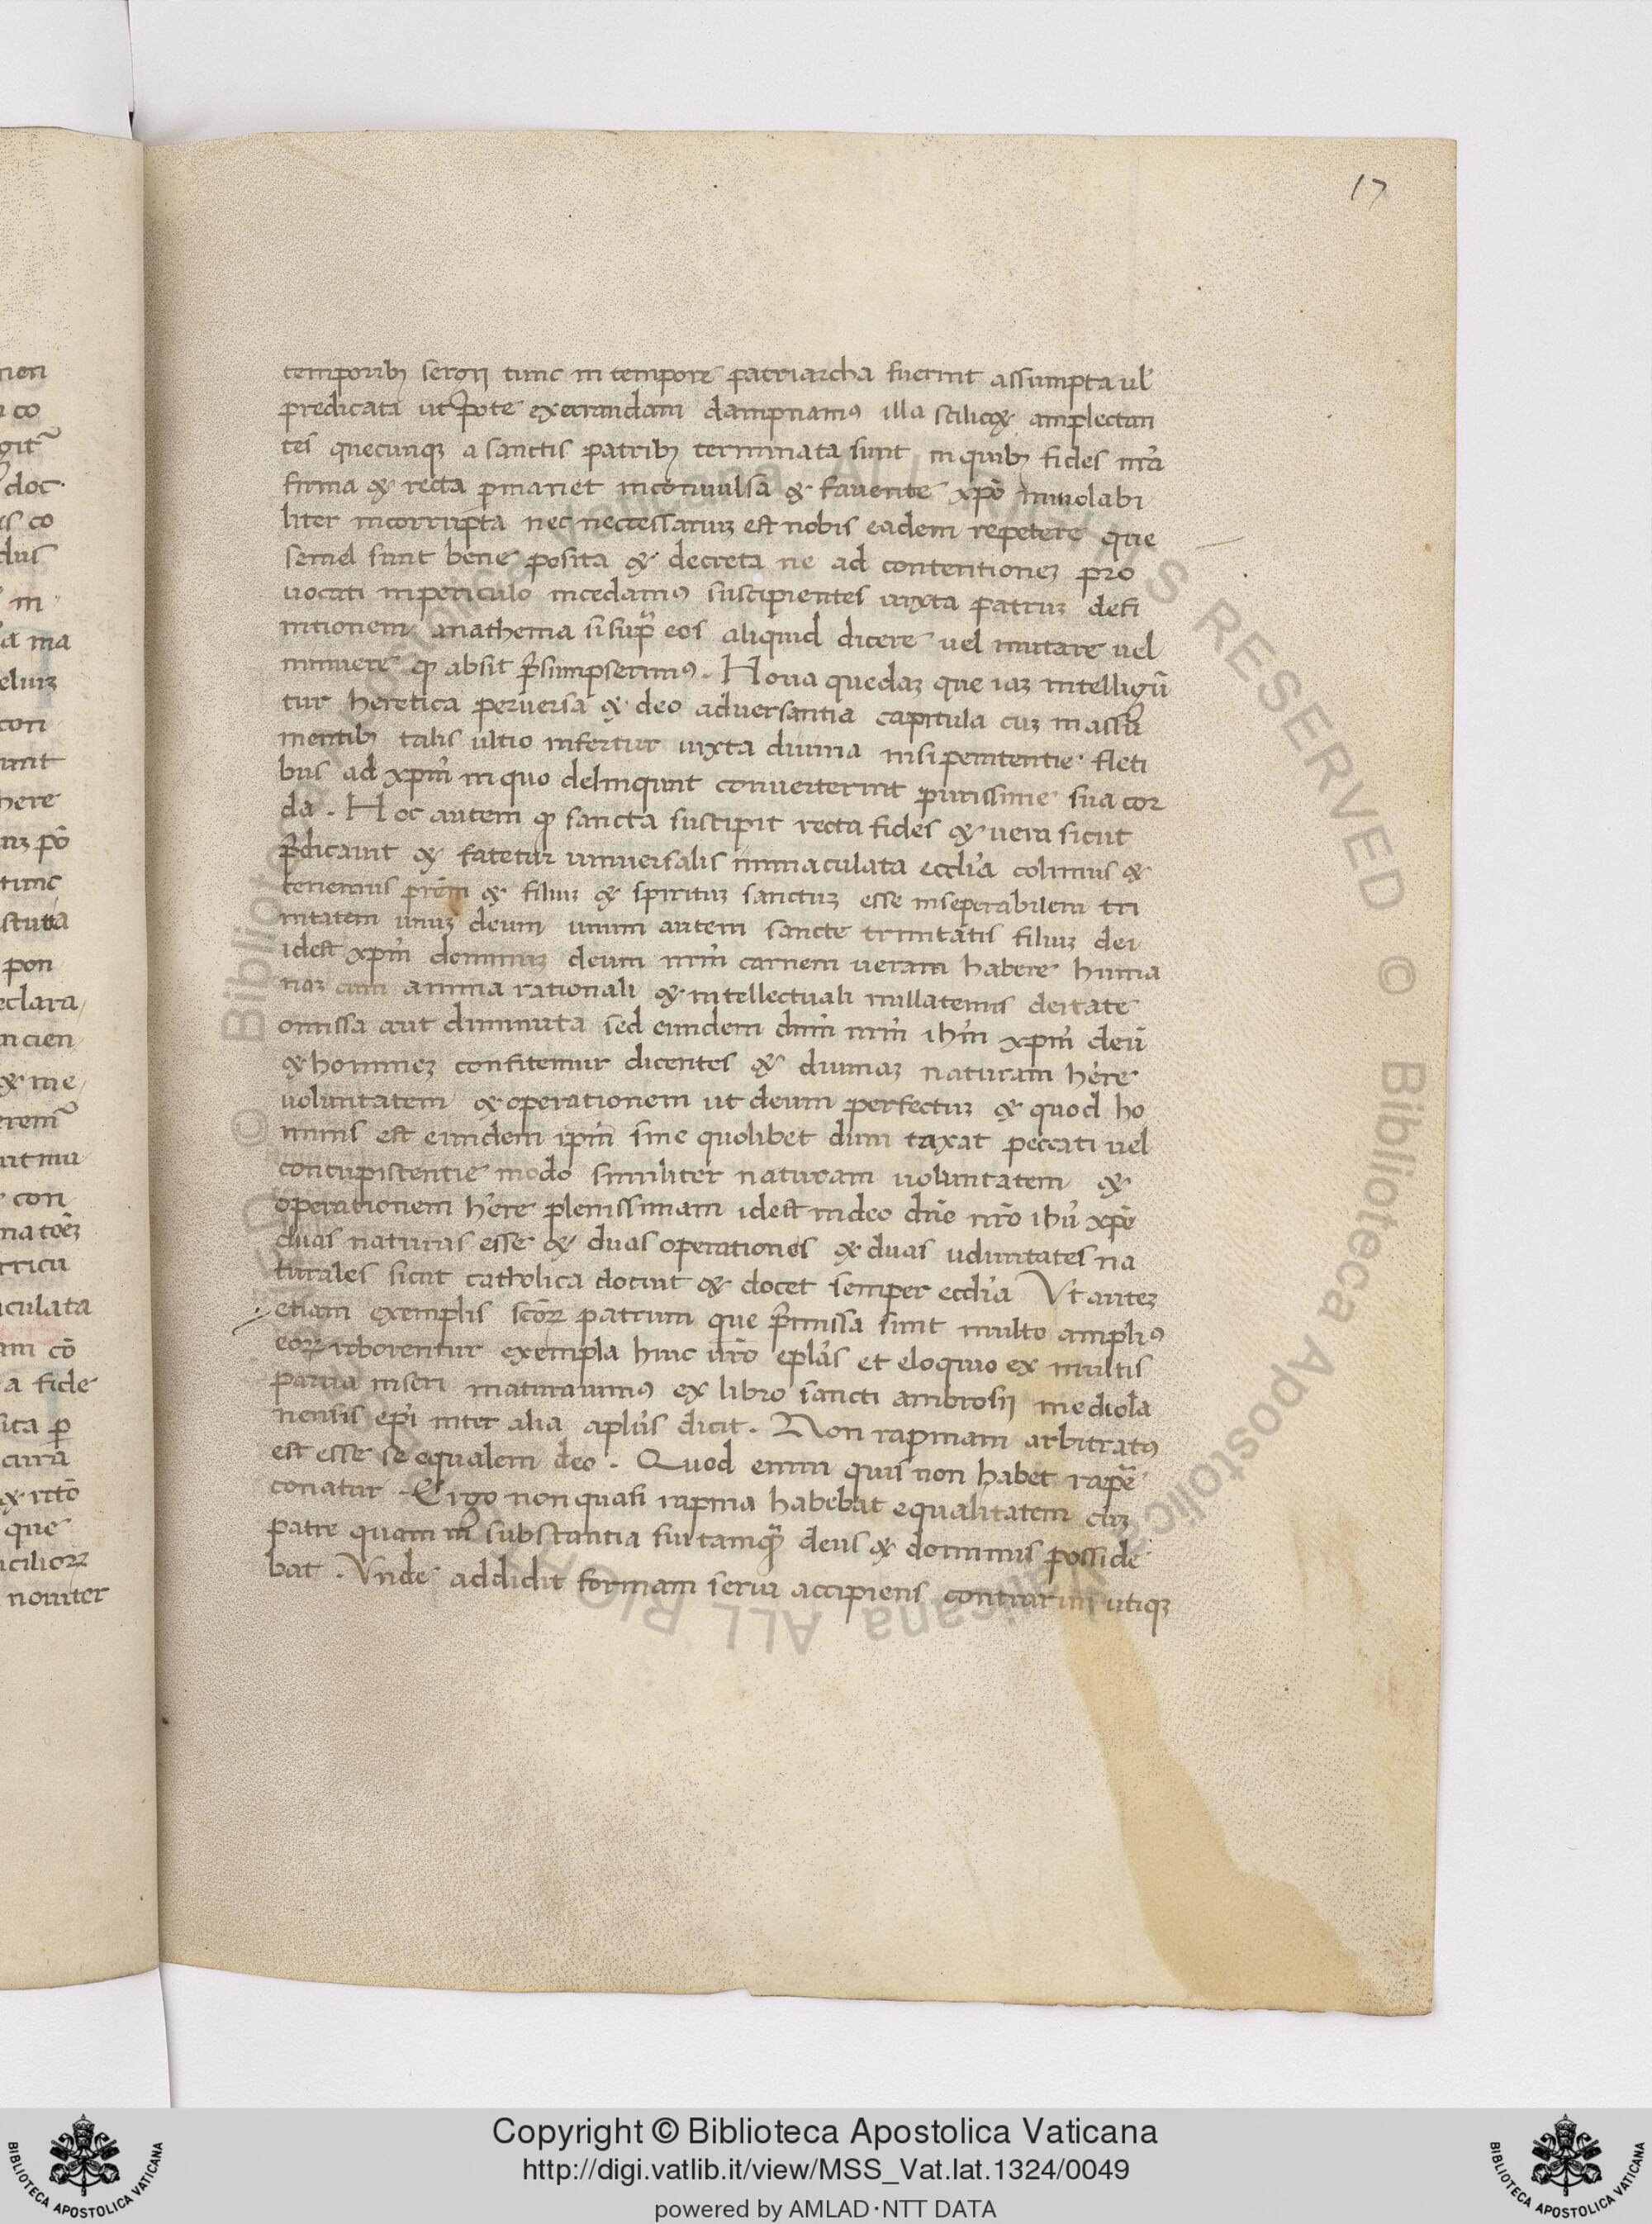 17
temporibꝫ sergij tunc in tempore patriarcha fuerint assumpta ul̃
predicata utpote execrandam dampnamꝰ illa scilicet amplectan
tes quecunqꝫ a sanctis patribꝫ terminata sunt in quibꝫ fides nr̃a
firma & recta ꝑmanet inconvulsa & favente xpõ inviolabi
liter incorrupta nec neccessariuꝫ est nobis eadem repetere que
semel sunt bene posita & decreta ne ad contentioneꝫ pro
vocati in periculo incedamꝰ suscipientes iuxta patruꝫ defi
nitionem anathema si sup̃ eos aliquid dicere vel mutare vel
minuere qđ absit p̃sumpserimꝰ. Nova quedaꝫ que iaꝫ intelligũ
tur heretica perversa & deo adversantia capitula cuꝫ in assũ
mentibꝫ talis ultio infertur iuxta divina nisi penitentie fleti
bus ad xpm̃ in quo delinqunt converterint purissime sua cor
da. Hoc autem qđ sancta suscipit recta fides & vera sicut
p̃dicavit & fatetur universalis immaculata ecclia colimus &
tenemus prẽm & filiuꝫ & spirituꝫ sanctuꝫ esse inseperabilem tri
nitatem unuꝫ deum unum autem sancte trinitatis filiuꝫ dei
idest xpm̃ dominuꝫ deum nrm̃ carnem veram habere huma
naꝫ cum anima rationali & intellectuali nullatenus deitate
omissa aut diminuta sed eundem dnm̃ nrm̃ ihm̃ xpm̃ deũ
& homineꝫ confitemur dicentes & divinaꝫ naturam hẽre
voluntatem & operationem ut deum perfectuꝫ & quod ho
minis est eundem ipm̃ sine quolibet dum taxat peccati vel
concupiscentie modo similiter naturam voluntatem &
operationem hẽre plenissimam idest in deo dño nr̃o ihũ xpẽ
duas naturas esse & duas operationes & duas voluntates na
turales sicut catholica docuit & docet semper ecclia Ut auteꝫ
etiam exemplis scõꝝ patrum que p̃missa sunt multo ampliꝰ
eoꝝ roborentur exempla huic nr̃o eplãs et eloquio ex multis
parva inseri maturavimꝰ ex libro sancti ambrosij mediola
nensis epĩ inter alia aplũs dicit. Non rapinam arbitratꝰ
est esse se equalem deo. Quod enim quis non habet rapẽ
conatur. Ergo non quasi rapina habebat equalitatem cuꝫ
patre quam in substantia sui tamqꝫ deus & dominus posside
bat. Unde addidit formam servi accipiens contrarium utiqꝫ
Copyright © Biblioteca Apostolica Vaticana
http://digi.vatlib.it/view/MSS_Vat.lat.1324/0049
powered by AMLAD·NTT DATA